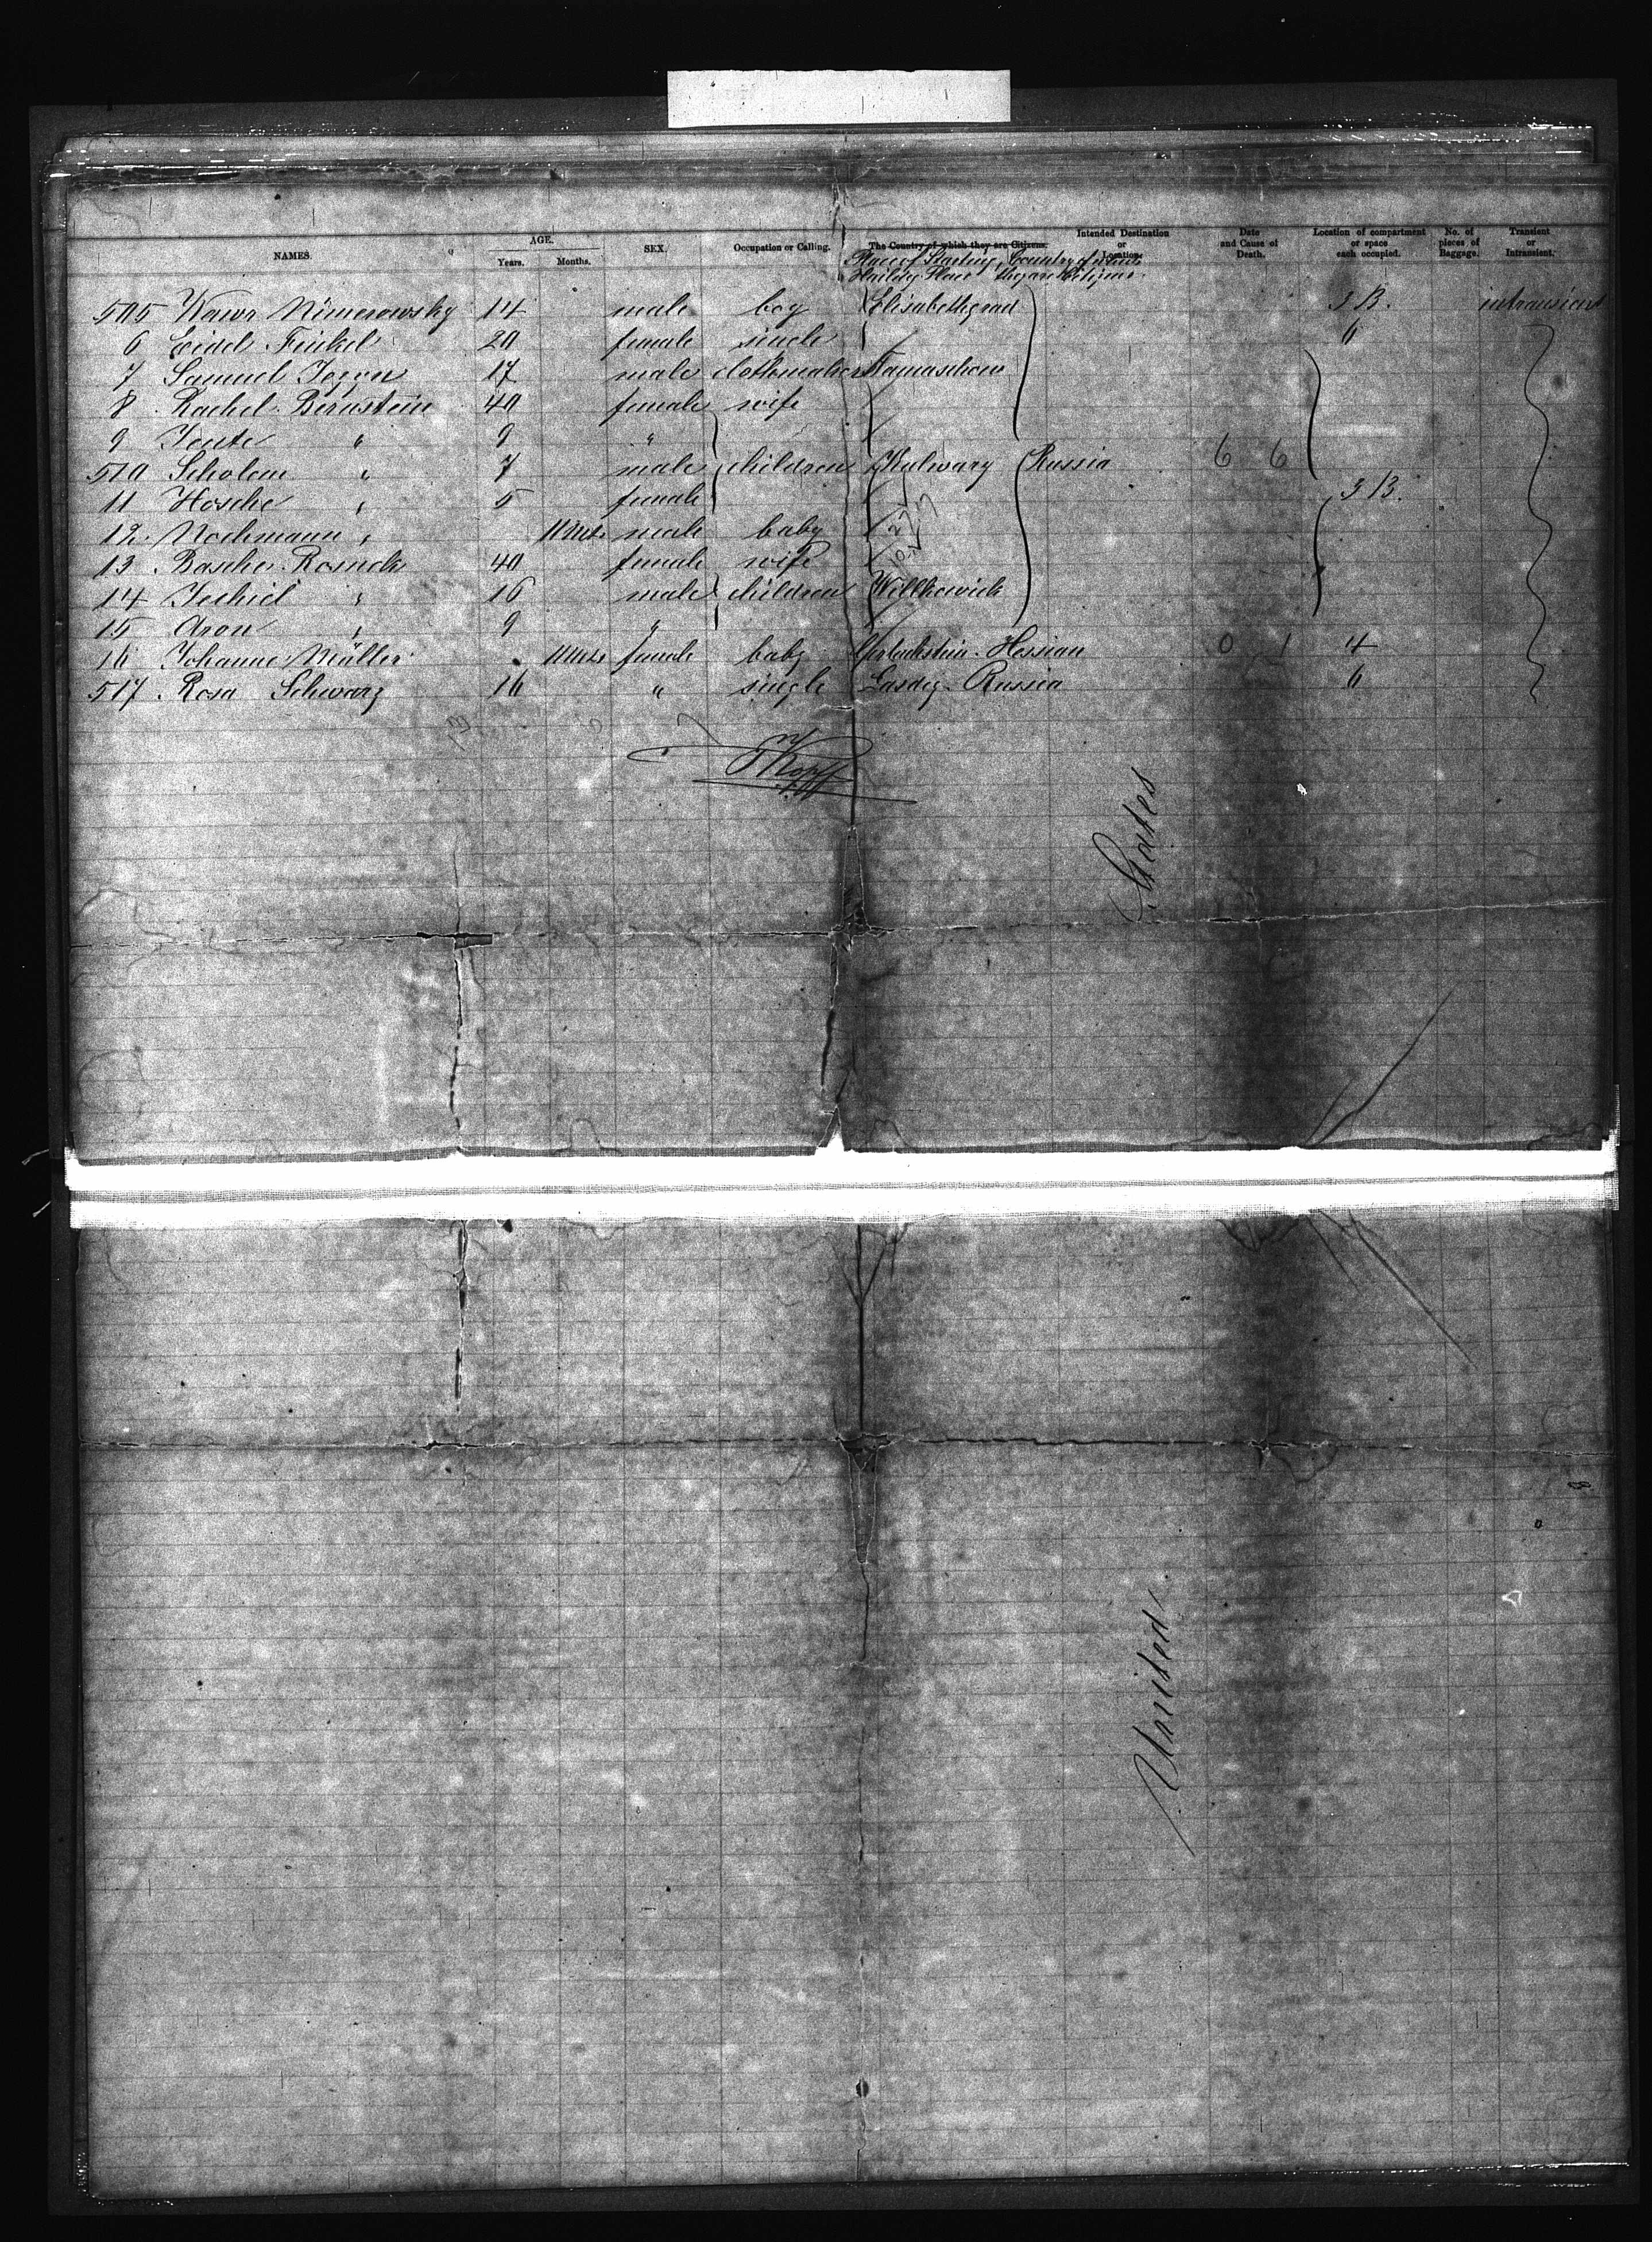 NAMES. AGE. Years. Months. SEX. Occupation or Calling. The Country of which they are Citizens. Intended Destination or Location. Date and Cause of Death. Location of compartment or space each occupied. No. of pieces of Baggage. Transient or Intransient.
Place of Starting Country of which
Place they are Citizens.
505 Nimerowsky 14 male boy Elisabethgrad 3 B. intransient
6 Finkel 20 female single 6
7 Samuel 17 male clothmaker Tamaschow
8 Rachel Bernstein 40 female wife
9 Jente " 9 "
510 Scholem " 7 male children Kalwary Russia 6 6
11 Hosche " 5 female 3 B.
12 Nochmann " 11 Mts male baby
13 Basche 40 female wife
14 Jechiel " 16 male children Willkowisk
15 Aron " 9 "
16 Johanne Müller 11 Mts female baby Hessian 0 1 4
517 Rosa Schwarz 16 " single Russia 6
States
United